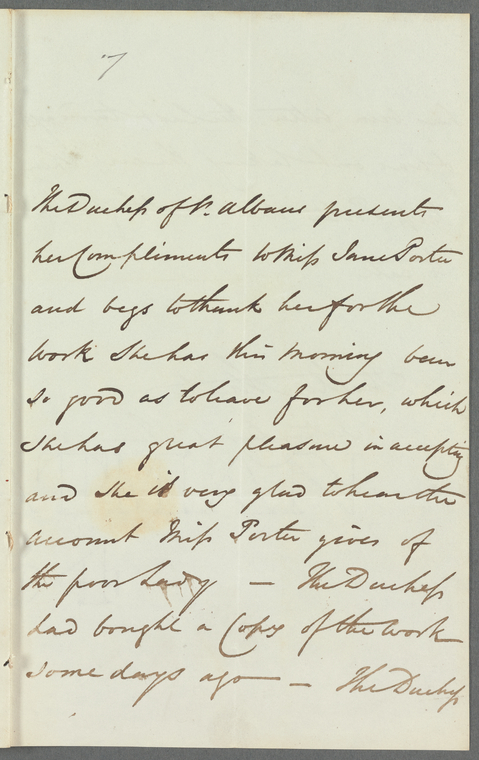 7
The Duchess of St. Albans presents
her Compliments to Miss Jane Porter
and begs to thank her for the
work she has this morning been
so good as to leave for her, which
she has great pleasure in accepting
and she is very glad to hear the
account Miss Porter gives of
the poor Lady — The Duchess
had bought a Copy of the work
some days ago — The Duchess